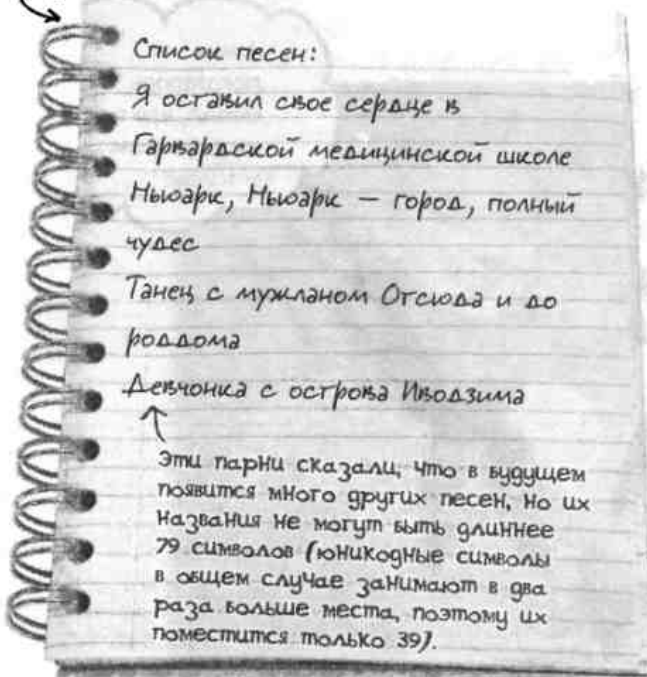 Список песен:
Я оставил свое сердце в
Гарвардской медицинской школе
Ньюарк, Ньюарк — город, полный
чудес
Танец с мужланом Отсюда и до
роддома
Девчонка с острова Иводзима
Эти парни сказали, что в будущем
появится много других песен, но их
названия не могут быть длиннее
79 символов (юникодные символы
в общем случае занимают в два
раза больше места, поэтому их
поместится только 39).